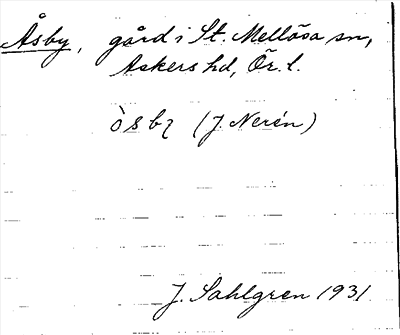 Åsby, gård i St. Mellösa sn,
Askers hd, Ör. l.
(J. Nerén)
J. Sahlgren 1931